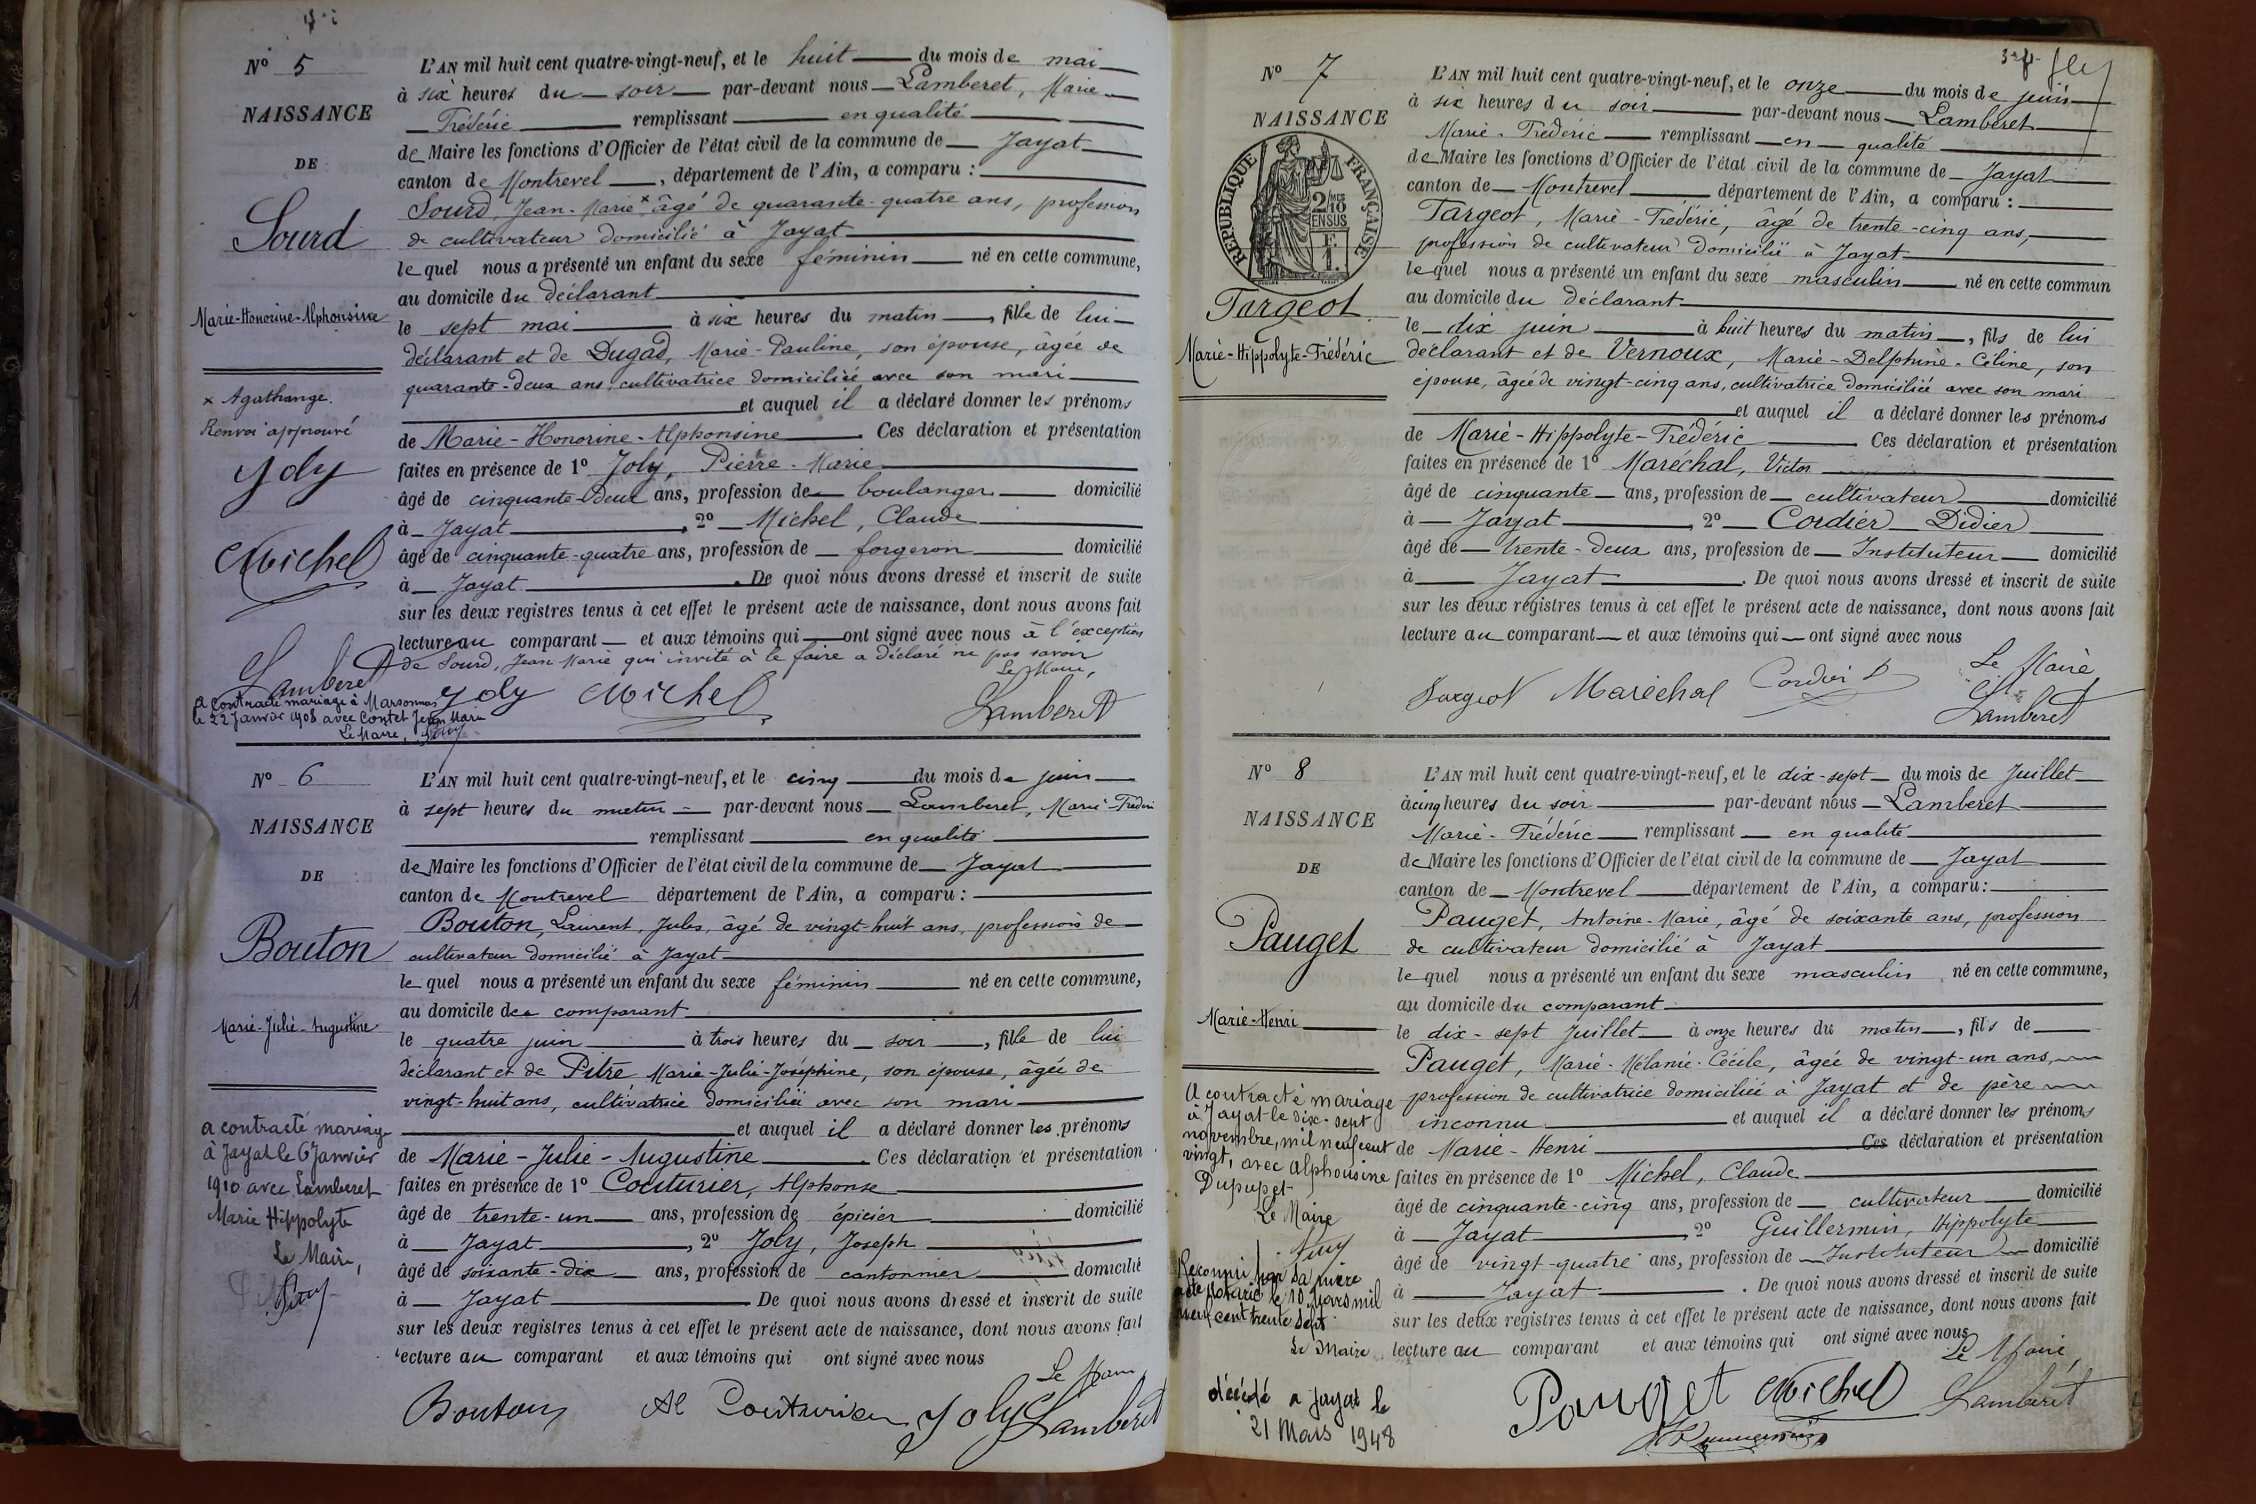 Nº 5
NAISSANCE
DE
Sourd
Marie-Honorine-Alphonsine
× Agathange.
Renvoi approuvé
Joly
Michel
Lamberet
a contracté mariage à Marsonnas
le 22 Janvier 1908 avec Contet Jean Marie
Le Maire,
L'AN mil huit cent quatre-vingt-neuf, et le huit du mois de mai
à six heures du soir par-devant nous Lamberet, Marie
Frédéric remplissant en qualité
de Maire les fonctions d'Officier de l'état civil de la commune de Jayat
canton de Montrevel, département de l'Ain, a comparu :
Sourd, Jean-Marie × âgé de quarante-quatre ans, profession
de cultivateur domicilié à Jayat
lequel nous a présenté un enfant du sexe féminin né en cette commune,
au domicile du déclarant
le sept mai à six heures du matin, fille de lui
déclarant et de Dugad, Marie-Pauline, son épouse, âgée de
quarante-deux ans, cultivatrice domiciliée avec son mari
et auquel il a déclaré donner les prénoms
de Marie-Honorine-Alphonsine. Ces déclaration et présentation
faites en présence de 1º Joly, Pierre-Marie
âgé de cinquante-deux ans, profession de boulanger domicilié
à Jayat, 2º Michel, Claude
âgé de cinquante-quatre ans, profession de forgeron domicilié
à Jayat. De quoi nous avons dressé et inscrit de suite
sur les deux registres tenus à cet effet le présent acte de naissance, dont nous avons fait
lecture au comparant et aux témoins qui ont signé avec nous à l'exception
de Sourd, Jean Marie qui invité à le faire a déclaré ne pas savoir
Le Maire,
Joly Michel Lamberet
Nº 6
NAISSANCE
DE
Bouton
Marie-Julie-Augustine
a contracté mariage
à Jayat le 6 Janvier
1910 avec Lamberet
Marie Hippolyte
Le Maire,
L'AN mil huit cent quatre-vingt-neuf, et le cinq du mois de juin
à sept heures du matin par-devant nous Lamberet, Marie-Frédéric
remplissant en qualité
de Maire les fonctions d'Officier de l'état civil de la commune de Jayat
canton de Montrevel département de l'Ain, a comparu :
Bouton, Laurent, Jules, âgé de vingt-huit ans, profession de
cultivateur domicilié à Jayat
lequel nous a présenté un enfant du sexe féminin né en cette commune,
au domicile du comparant
le quatre juin à trois heures du soir, fille de lui
déclarant et de Pitre Marie-Julie-Joséphine, son épouse, âgée de
vingt-huit ans, cultivatrice domiciliée avec son mari
et auquel il a déclaré donner les prénoms
de Marie-Julie-Augustine. Ces déclaration et présentation
faites en présence de 1º Couturier, Alphonse
âgé de trente-un ans, profession de épicier domicilié
à Jayat, 2º Joly, Joseph
âgé de soixante-dix ans, profession de cantonnier domicilié
à Jayat De quoi nous avons dressé et inscrit de suite
sur les deux registres tenus à cet effet le présent acte de naissance, dont nous avons fait
lecture au comparant et aux témoins qui ont signé avec nous
Le Maire
Bouton Al Couturier Joly Lamberet
Nº 7
NAISSANCE
REPUBLIQUE FRANÇAISE
2/10 EN SUS
Targeot
Marie-Hippolyte-Frédéric
L'AN mil huit cent quatre-vingt-neuf, et le onze du mois de juin
à six heures du soir par-devant nous Lamberet
Marie-Frédéric remplissant en qualité
de Maire les fonctions d'Officier de l'état civil de la commune de Jayat
canton de Montrevel département de l'Ain, a comparu :
Targeot, Marie-Frédéric, âgé de trente-cinq ans,
profession de cultivateur domicilié à Jayat
lequel nous a présenté un enfant du sexe masculin né en cette commun
au domicile du déclarant
le dix juin à huit heures du matin, fils de lui
déclarant et de Vernoux, Marie-Delphine-Céline, son
épouse, âgée de vingt-cinq ans, cultivatrice domiciliée avec son mari
et auquel il a déclaré donner les prénoms
de Marie-Hippolyte-Frédéric Ces déclaration et présentation
faites en présence de 1º Maréchal, Victor
âgé de cinquante ans, profession de cultivateur domicilié
à Jayat, 2º Cordier Didier
âgé de trente-deux ans, profession de Instituteur domicilié
à Jayat. De quoi nous avons dressé et inscrit de suite
sur les deux registres tenus à cet effet le présent acte de naissance, dont nous avons fait
lecture au comparant et aux témoins qui ont signé avec nous
Le Maire
Targeot Maréchal Cordier D Lamberet
Nº 8
NAISSANCE
DE
Pauget
Marie-Henri
A contracté mariage
à Jayat le dix-sept
novembre, mil neuf cent
vingt, avec Alphonsine
Dupupet
Le Maire
Reconnu par sa mère
acte notarié le 10 Mars mil
neuf cent trente sept
Le Maire
décédé a Jayat le
21 Mars 1948
L'AN mil huit cent quatre-vingt-neuf, et le dix-sept du mois de Juillet
à cinq heures du soir par-devant nous Lamberet
Marie-Frédéric remplissant en qualité
de Maire les fonctions d'Officier de l'état civil de la commune de Jayat
canton de Montrevel département de l'Ain, a comparu :
Pauget, Antoine-Marie, âgé de soixante ans, profession
de cultivateur domicilié à Jayat
lequel nous a présenté un enfant du sexe masculin né en cette commune,
au domicile du comparant
le dix-sept Juillet à onze heures du matin, fils de
Pauget, Marie-Mélanie-Cécile, âgée de vingt-un ans,
profession de cultivatrice domiciliée à Jayat et de père
inconnu et auquel il a déclaré donner les prénoms
de Marie-Henri Ces déclaration et présentation
faites en présence de 1º Michel, Claude
âgé de cinquante-cinq ans, profession de cultivateur domicilié
à Jayat, 2º Guillermin, Hippolyte
âgé de vingt-quatre ans, profession de Instituteur domicilié
à Jayat. De quoi nous avons dressé et inscrit de suite
sur les deux registres tenus à cet effet le présent acte de naissance, dont nous avons fait
lecture au comparant et aux témoins qui ont signé avec nous
Le Maire,
Pauget Michel Lamberet